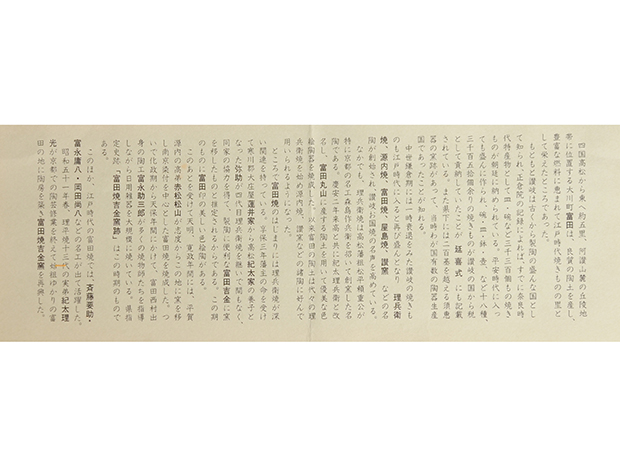 四国高松から東へ約五里、阿讃山麓の丘陵地
帯に位置する大川町富田は、良質の陶土を産し、
豊富な燃料に恵まれて江戸時代焼きものの里と
して栄えたところであった。
もともと讃岐は古くから製陶の盛んな国とし
て知られ、正倉院の記録によれば、すでに奈良時
代特産物として皿・碗など三千三百五十余りの焼き
ものが朝廷に納められている。平安時代に入っ
ても盛んに作られ、碗・皿・鉢・壷、など十八種、
三千百五拾個余りの焼きものが讃岐の国から税
として貢納していたことが、延喜式にも記載
されている。また県下には二百基を越える須恵
器の窯跡があり、当時わが国有数の陶器生産
国であったことが知れる。
中世鎌倉期には一時衰退をみた讃岐の焼きも
のも江戸時代に入ると再び盛んとなり、理兵衛
焼、源内焼、富田焼、屋島焼、讃窯などの名
陶が創始され、讃岐お国焼の名声を高めている。
なかでも、理兵衛焼は高松藩祖松平頼重公が
特に京都の名工森島作兵衛を招いて創業した名
陶である。慶安年来高松に来て理兵衛と改
名し、富田丸山に産する陶土を用いて優美な色
絵陶器を焼成した。以来富田の陶土は代々の理
兵衛焼を始め源内焼、讃窯などの諸陶に好んで
用いられるようになった。
ところで富田焼のはじまりには理兵衛焼が深
い関連を持っている。享保三年藩主の命を受け
て寒川郡大庄屋蓮井家から高松紀太家の養子と
なった弥助が、二代目理兵衛を継いで間もなく、
同家の協力を得て、製陶に便利な富田吉金に窯
を移したものと推定されるからである。この期
のものに富田印の美しい色絵陶がある。
このあとを受けて天明、寛政年間には、平賀
源内の高弟赤松松山が志度からこの地に窯を移
し南京染付を中心とした富田焼を焼成した。つ
いで化政期から天保年間にかけて、富田西村出
身の陶工富永助三郎が、多くの焼物師たちを指導
しながら日用雑器を大規模に焼いている。県指
定史跡「富田焼吉金窯跡」はこの時期のもので
ある。
このほか、江戸時代の富田焼では、斉藤要助・
富永庸八・岡田尚八などの名工が出て活躍した。
昭和五十一年春、理平焼十三代の実弟紀太理
光が京都での陶芸修業を終えて始祖ゆかりの富
田の地に陶房を築き富田焼吉金窯を再興した。